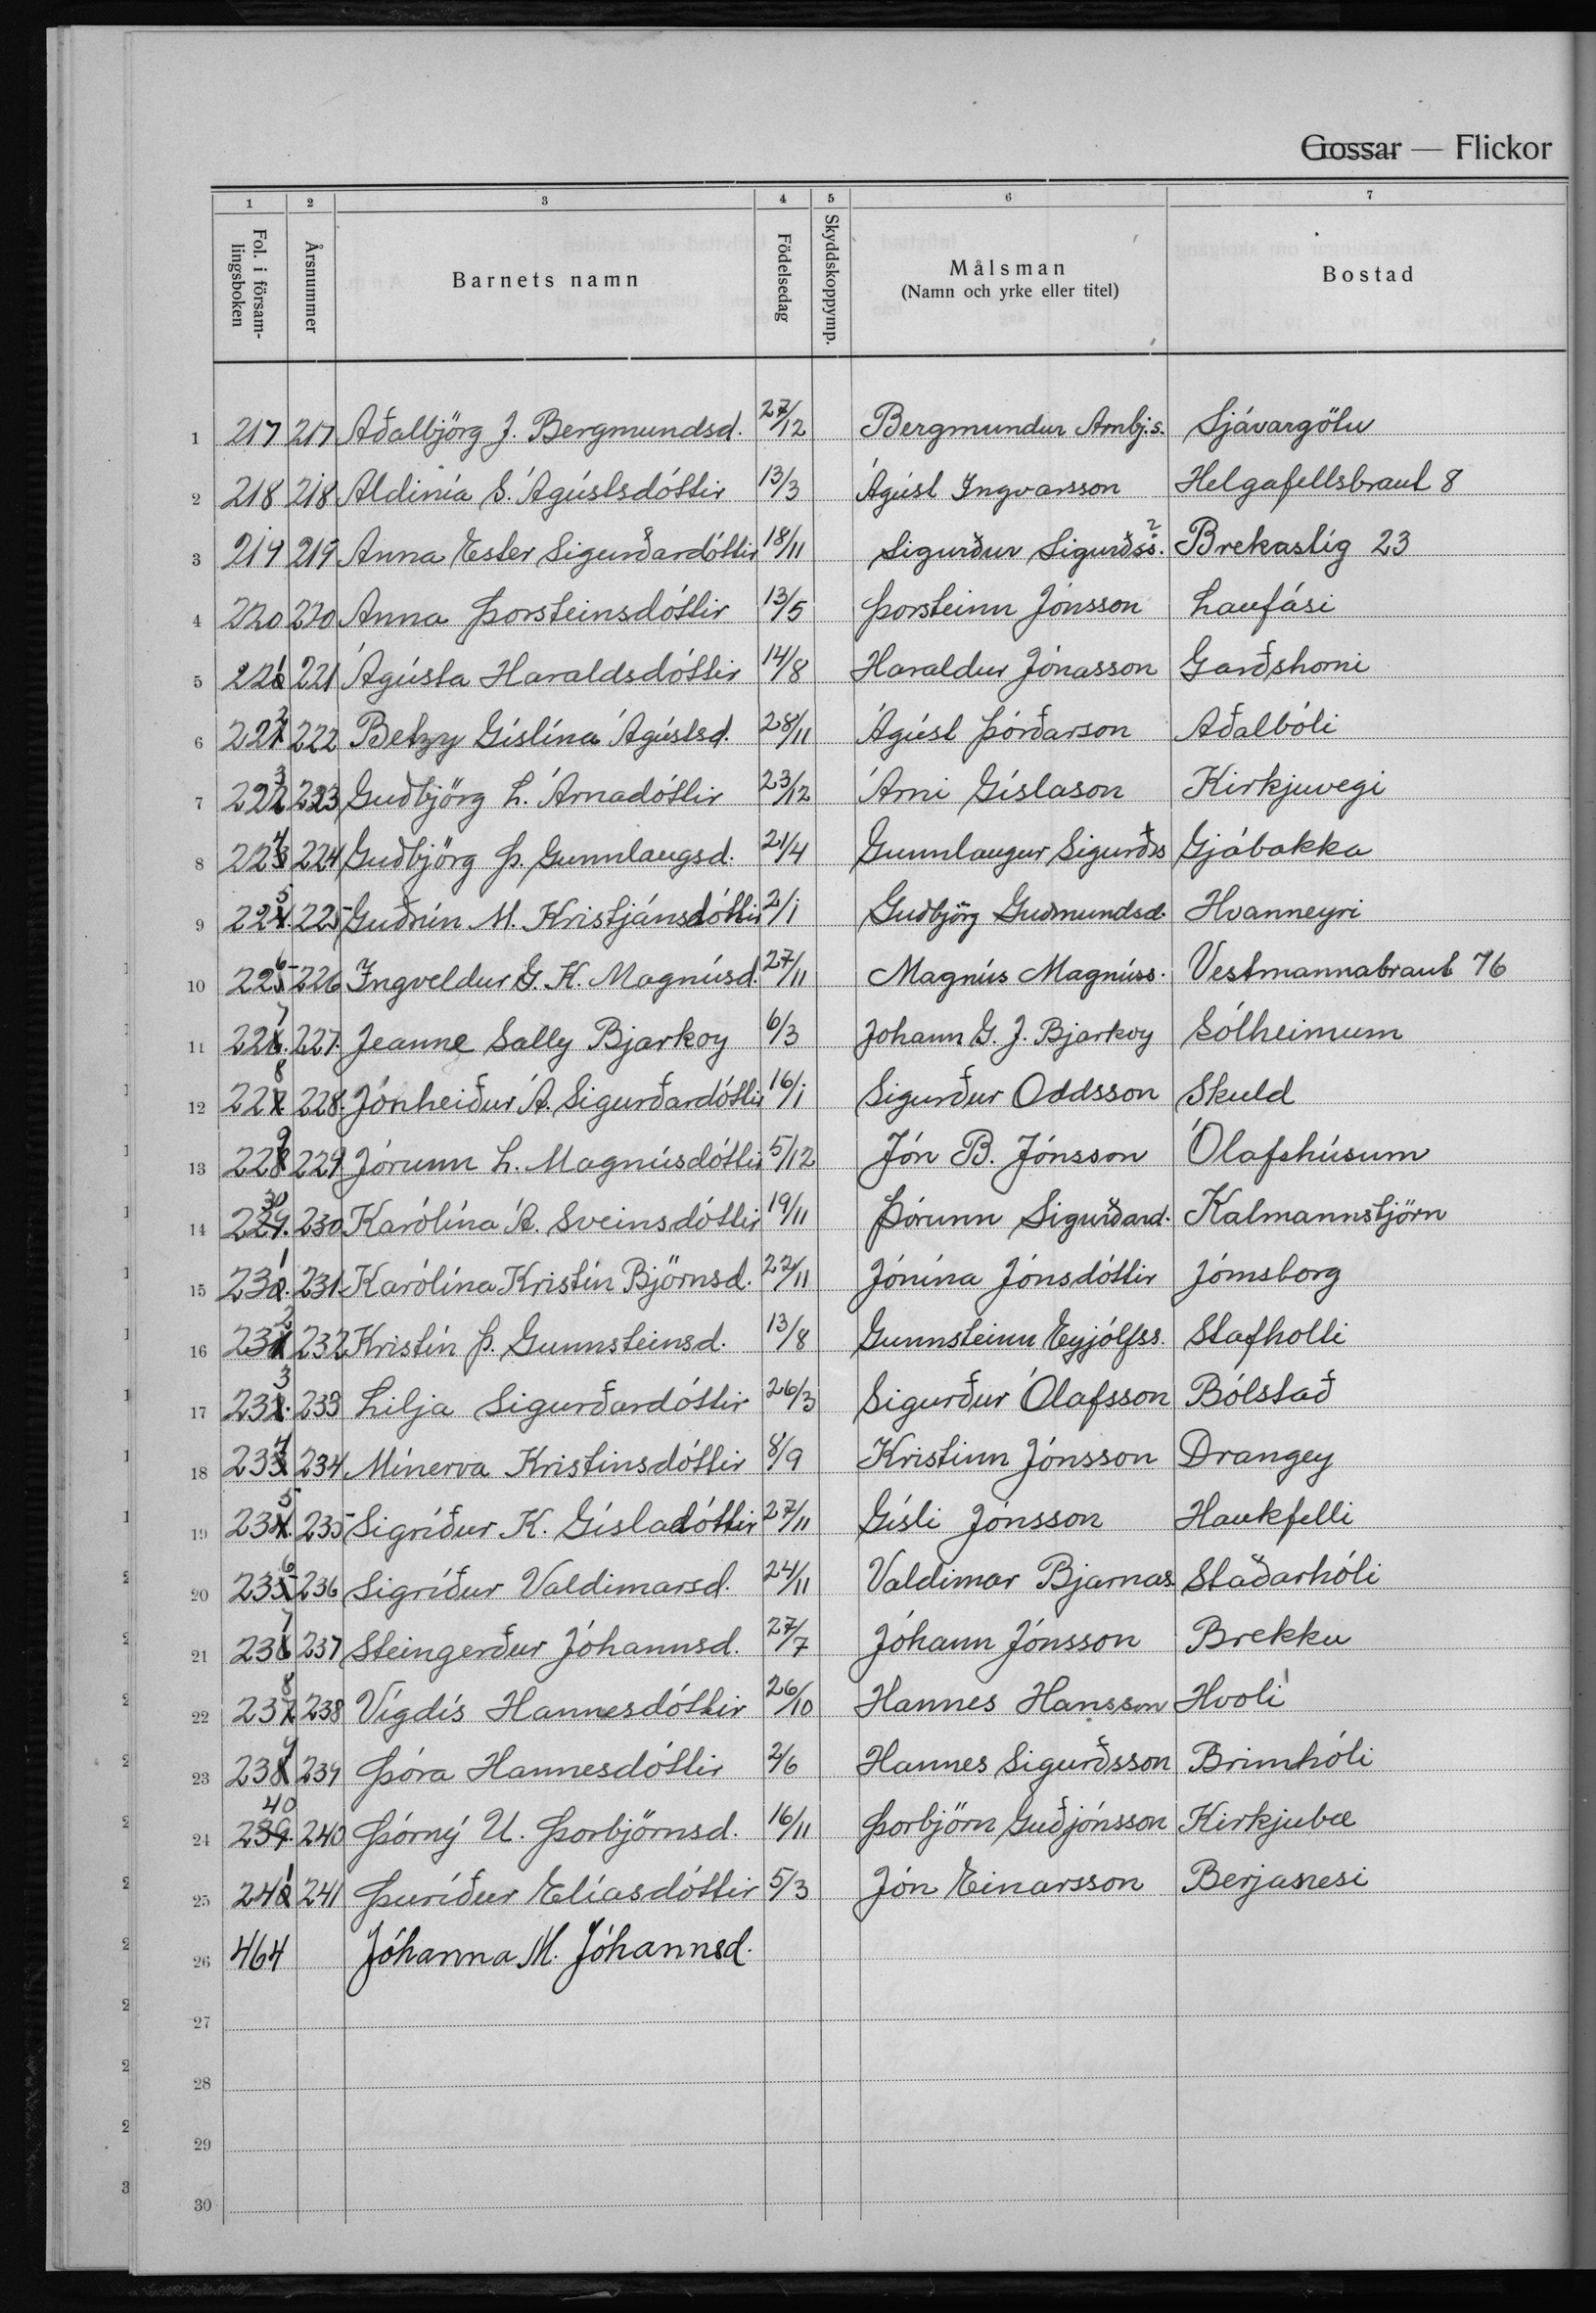 Gossar — Flickor
1 2 3 4 5 6 7
Fol. i försam-
lingsboken
Årsnummer
Barnets namn
Födelsedag
Skyddskoppymp.
Målsman
(Namn och yrke eller titel)
Bostad
1 217 217 Aðalbjörg J. Bergmundsd. 27/12 Bergmundur Arnbj.s. Sjávargötu
2 218 218 Aldinía S. Ágústsdóttir 13/3 Ágúst Ingvarsson Helgafellsbraut 8
3 219 219 Anna Ester Sigurðardóttir 18/11 Sigurður Sigurðss. Brekastíg 23
4 220 220 Anna Þorsteinsdóttir 13/5 Þorsteinn Jónsson Laufási
5 221 221 Ágústa Haraldsdóttir 14/8 Haraldur Jónasson Garðshorni
6 222 222 Betzy Gíslína Ágústsd. 28/11 Ágúst Þórðarson Aðalbóli
7 223 223 Guðbjörg L. Árnadóttir 23/12 Árni Gíslason Kirkjuvegi
8 224 224 Guðbjörg Þ. Gunnlaugsd. 21/4 Gunnlaugur Sigurðs Gjábakka
9 225 225 Guðrún M. Kristjánsdóttir 2/1 Guðbjörg Guðmundsd. Hvanneyri
10 226 226 Ingveldur G. K. Magnúsd. 27/11 Magnús Magnúss. Vestmannabraut 76
11 227 227. Jeanne Sally Bjarkoy 6/3 Johann G. J. Bjarkoy Sólheimum
12 228 228. Jónheiður Á. Sigurðardóttir 16/1 Sigurður Oddsson Skuld
13 229 229 Jórunn L. Magnúsdóttir 5/12 Jón B. Jónsson Ólafshúsum
14 230 230 Karólína Á. Sveinsdóttir 19/11 Þórunn Sigurðard. Kalmannstjörn
15 231 231 Karólína Kristín Björnsd. 22/11 Jónína Jónsdóttir Jómsborg
16 232 232 Kristín Þ. Gunnsteinsd. 13/8 Gunnsteinn Eyjólfss. Stafholti
17 233 233 Lilja Sigurðardóttir 26/3 Sigurður Ólafsson Bólstað
18 234 234 Mínerva Kristinsdóttir 8/9 Kristinn Jónsson Drangey
19 235 235 Sigríður K. Gísladóttir 27/11 Gísli Jónsson Haukfelli
20 236 236 Sigríður Valdimarsd. 24/11 Valdimar Bjarnas Staðarhóli
21 237 237 Steingerður Jóhannsd. 27/7 Jóhann Jónsson Brekku
22 238 238 Vígdís Hannesdóttir 26/10 Hannes Hansson Hvoli
23 239 239 Þóra Hannesdóttir 2/6 Hannes Sigurðsson Brimhóli
24 240 240 Þórný U. Þorbjörnsd. 16/11 Þorbjörn Guðjónsson Kirkjubæ
25 241 241 Þuríður Elíasdóttir 5/3 Jón Einarsson Berjanesi
26 464 Jóhanna M. Jóhannsd.
27
28
29
30